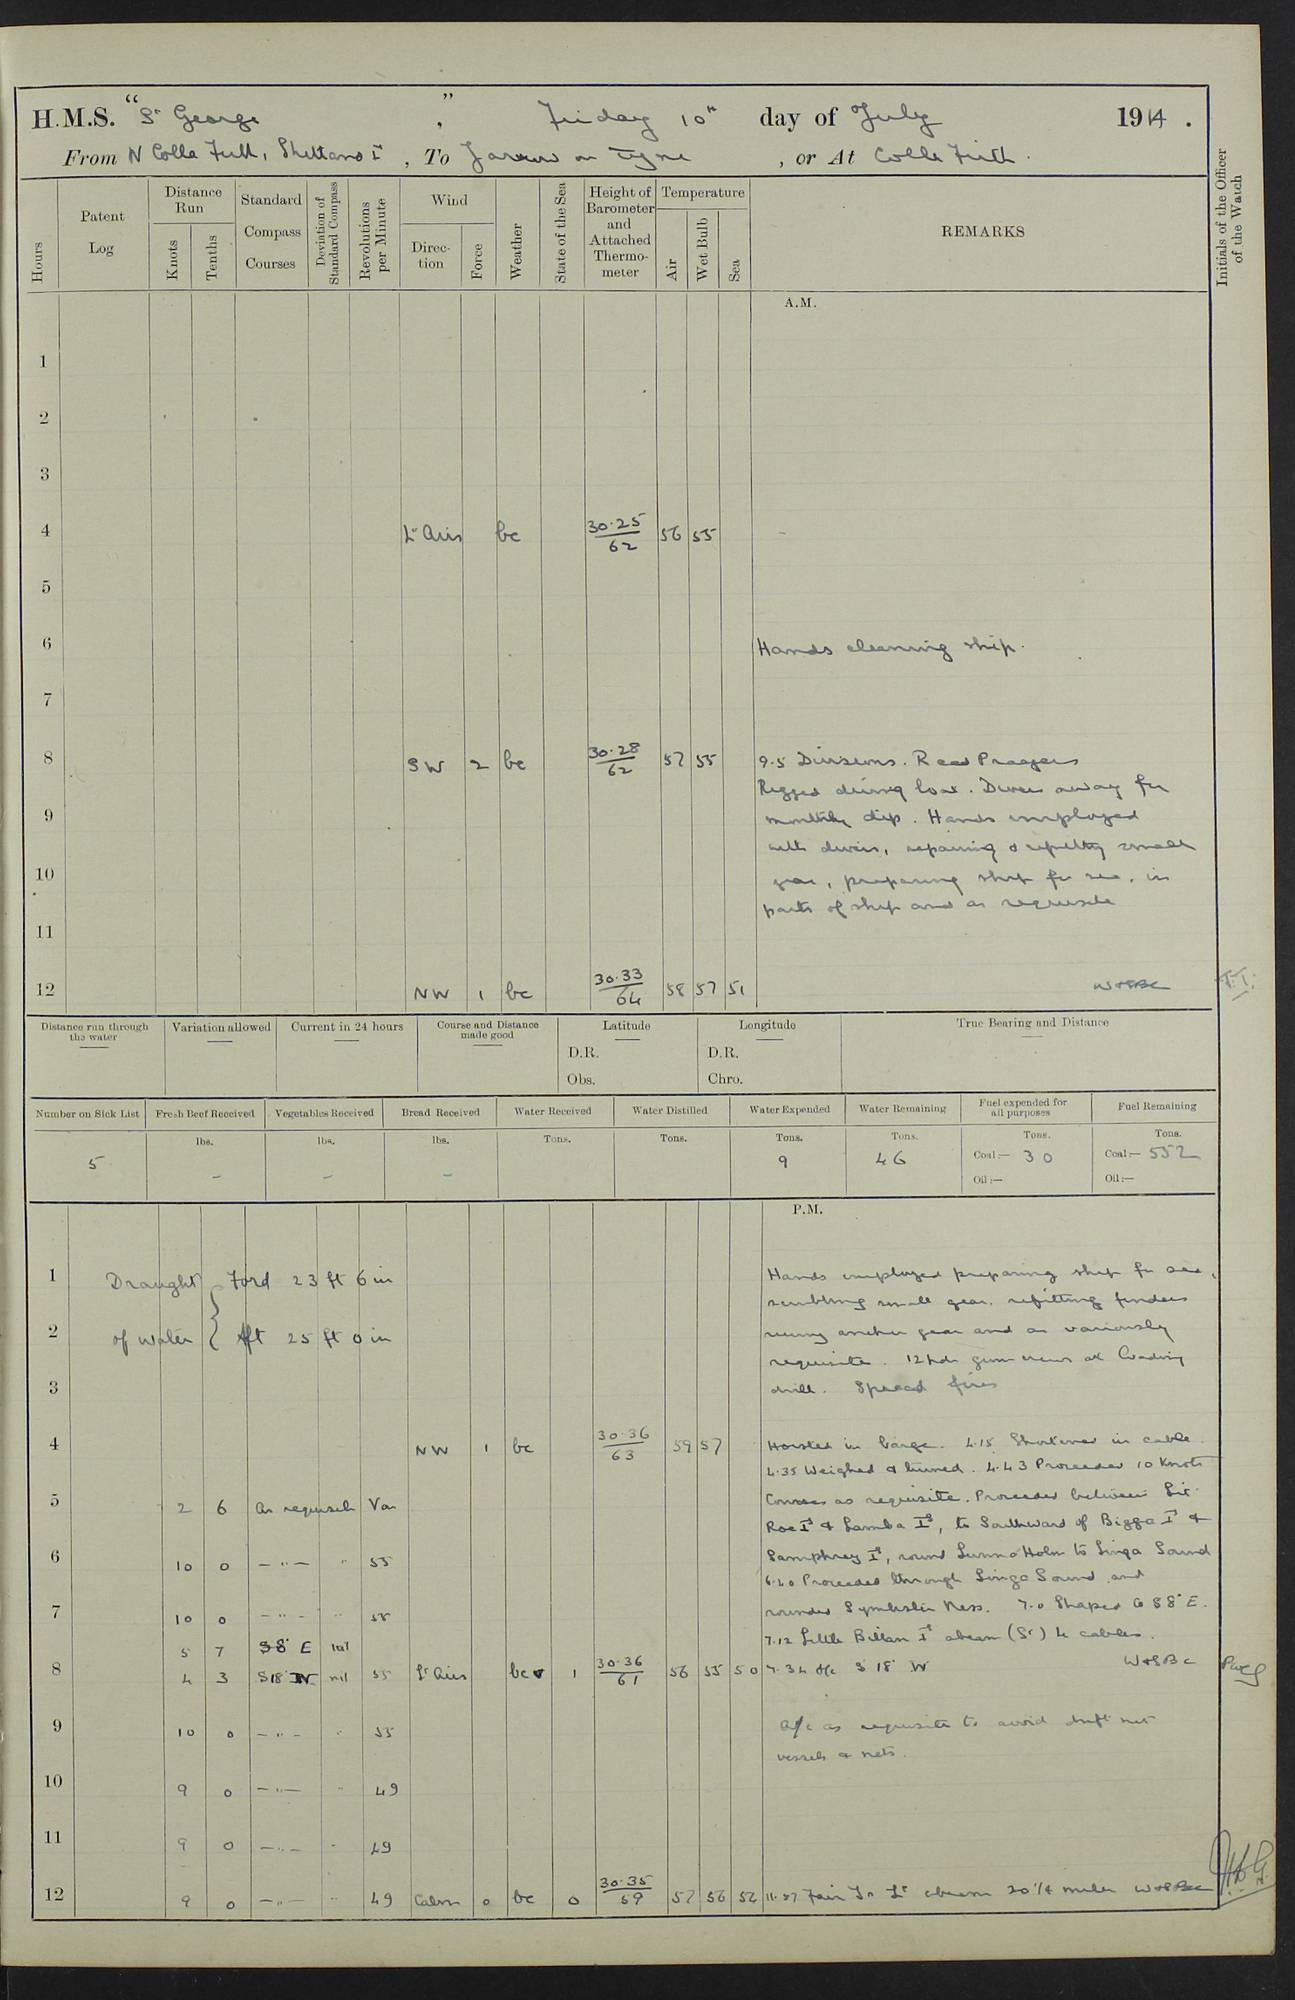 H.M.S. "St George", Friday 10th day of July 1914.
From N Colla Firth, Shetland Is, To Jarrow on Tyne, or At Colla Firth.
Hours
Patent Log
Distance Run
Knots
Tenths
Standard Compass Courses
Deviation of Standard Compass
Revolutions per Minute
Wind
Direction
Force
Weather
State of the Sea
Height of Barometer and Attached Thermometer
Temperature
Air
Wet Bulb
Sea
REMARKS
Initials of the Officer of the Watch
A.M.
1
2
3
4 Lt Airs bc 30.25/62 56 55
5
6 Hands cleaning ship.
7
8 SW 2 bc 30.28/62 57 55 9.5 Divisions. Read Prayers
Rigged diving boat. Divers away for
9 monthly dip. Hands employed
with divers, repairing & refitting small
10 gear, preparing ship for sea, in
parts of ship and as requisite
11
12 NW 1 bc 30.33/64 58 57 51
Distance run through the water
Variation allowed
Current in 24 hours
Course and Distance made good
Latitude
D.R.
Obs.
Longitude
D.R.
Chro.
True Bearing and Distance
Number on Sick List
5
Fresh Beef Received
lbs.
-
Vegetables Received
lbs.
-
Bread Received
lbs.
-
Water Received
Tons.
Water Distilled
Tons.
Water Expended
Tons.
9
Water Remaining
Tons.
46
Fuel expended for all purposes
Tons.
Coal:— 30
Oil:—
Fuel Remaining
Tons.
Coal:— 552
Oil:—
P.M.
1 Draught Ford 23 ft 6 in Hands employed preparing ship for sea,
scrubbing small gear, refitting fenders
2 of water Aft 25 ft 0 in anchor gear and as variously
requisite. 12 pdr guns crews at Loading
3 drill. Spread fires
4 NW 1 bc 30.36/63 59 57 Hoisted in barge. 4.15 Shortened in cable.
4.35 Weighed & turned. 4.43 Proceeded 10 Knots
5 2 6 As requisite Var Courses as requisite. Proceeded between Lit.
Roe Id & Lamba Id, to Southward of Bigga Id &
6 10 0 —"— " 55 Samphrey Id, round Lunna Holm to Linga Sound
6.40 Proceeded through Linga Sound and
7 10 0 —"— " 55 rounded Ness. 7.0 Shaped Co S 8° E.
5 7 S 8° E 7.12 Little Billan Id abeam (St) 4 cables.
8 4 3 S 18° W nil 55 Lt Airs bc 1 30.36/61 56 55 50 7.34 A/c S 18° W
9 10 0 —"— " 55 A/c as requisite to avoid drift net
vessels & nets.
10 9 0 —"— " 49
11 9 0 —"— " 49
12 9 0 —"— " 49 Calm 0 bc 0 30.35/59 57 56 54 11.57 Fair I. Lt abeam 20¼ miles